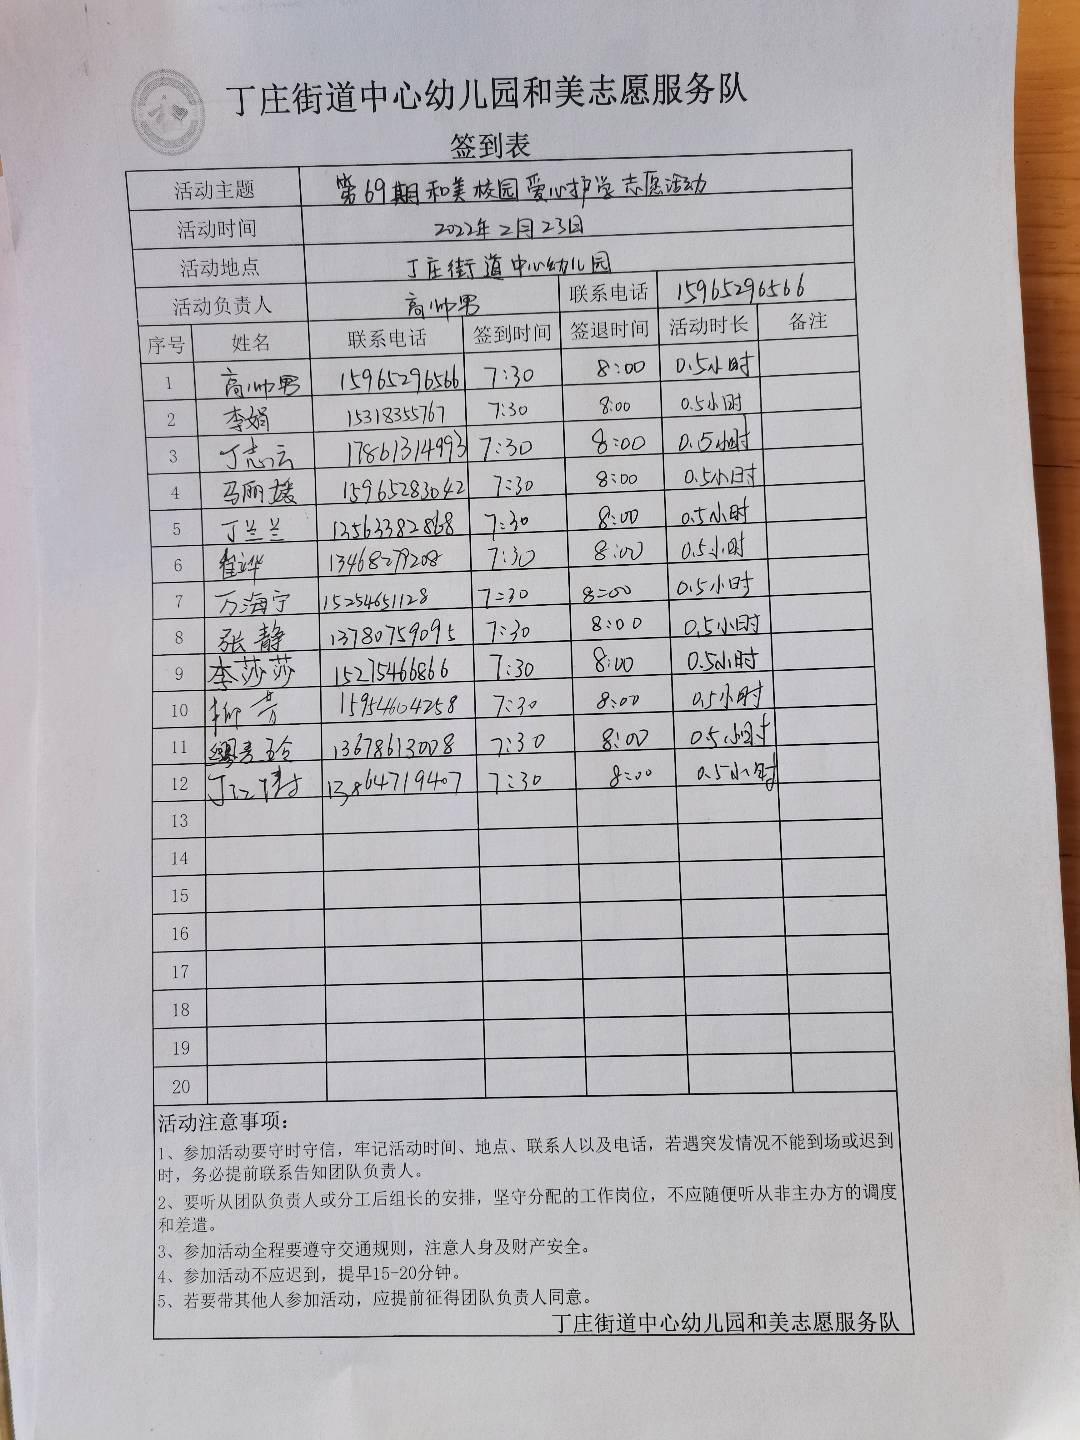 和
丁庄街道中心幼儿园和美志愿服务队
签到表
活动主题 第69期和美校园爱心护学志愿活动
活动时间 2022年2月23日
活动地点 丁庄街道中心幼儿园
活动负责人 高帅男 联系电话 15965296566
序号 姓名 联系电话 签到时间 签退时间 活动时长 备注
1 高帅男 15965296566 7:30 8:00 0.5小时
2 李娟 15318355767 7:30 8:00 0.5小时
3 丁志云 17861314993 7:30 8:00 0.5小时
4 马丽媛 15965283042 7:30 8:00 0.5小时
5 丁兰兰 13563382868 7:30 8:00 0.5小时
6 13468279208 7:30 8:00 0.5小时
7 万海宁 15254651128 7:30 8:00 0.5小时
8 张静 13780759095 7:30 8:00 0.5小时
9 李莎莎 15275466866 7:30 8:00 0.5小时
10 柳芳 15954604258 7:30 8:00 0.5小时
11 13678613008 7:30 8:00 0.5小时
12 13864719407 7:30 8:00 0.5小时
13
14
15
16
17
18
19
20
活动注意事项：
1、参加活动要守时守信，牢记活动时间、地点、联系人以及电话，若遇突发情况不能到场或迟到
时，务必提前联系告知团队负责人。
2、要听从团队负责人或分工后组长的安排，坚守分配的工作岗位，不应随便听从非主办方的调度
和差遣。
3、参加活动全程要遵守交通规则，注意人身及财产安全。
4、参加活动不应迟到，提早15-20分钟。
5、若要带其他人参加活动，应提前征得团队负责人同意。
丁庄街道中心幼儿园和美志愿服务队